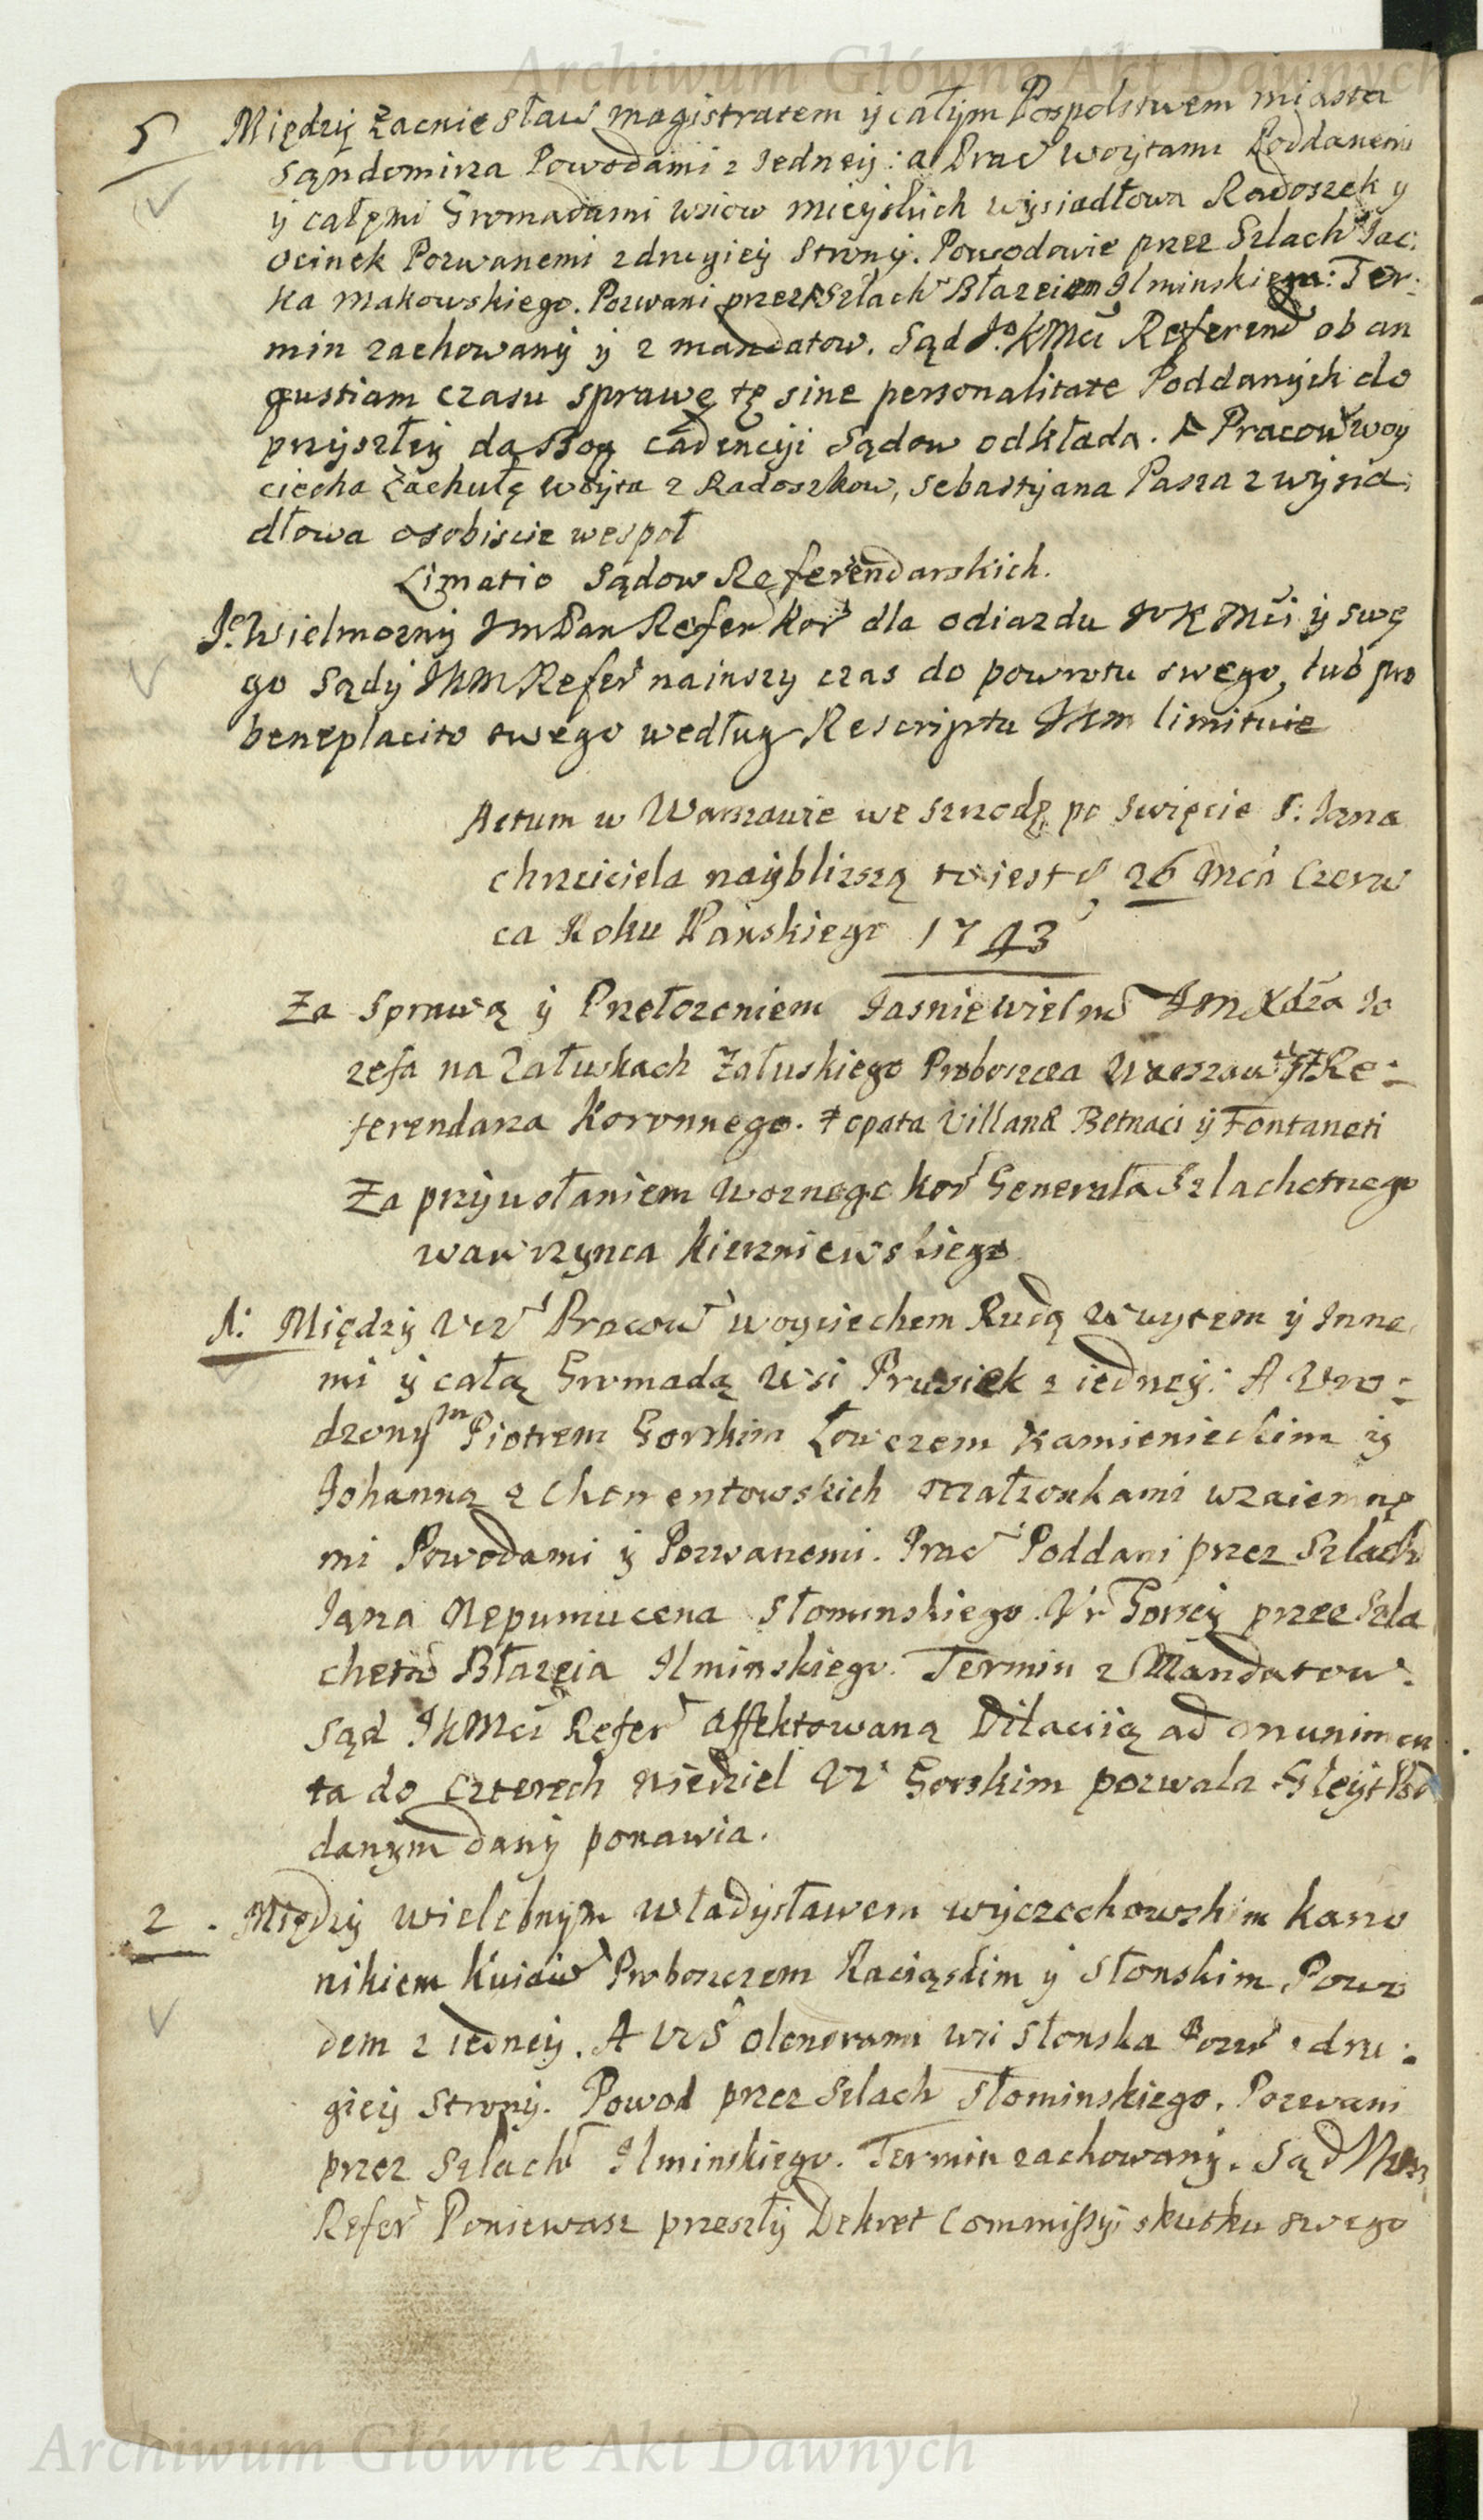 Archiwum Główne Akt Dawnych
5 Między Zacnie Sław magistratem y całym Pospolstwem miasta
Sąndomirza Powodami z Jedney: a Prac woytami Poddanemi
y całęmi Gromadami wsiow mieyskich wysiadłowa Radoszek y
ocinek Pozwanemi z drugiey Strony. Powodowie przez Szlach Jac:
ka Makowskiego. Pozwani przez Szlach Błazeiem Ilminskiego: Ter:
min zachowany y z mandatow. Sąd Jo KMci Referend ob an
gustiam czasu sprawę tę sine personalitate Poddanych do
przyszłey da Bog cadencyi Sądow odkłada. Pracow Woy
ciecha Zachułę woyta z Radoszkow, Sebastyana Pasza z wysia:
dłowa osobiscie wespoł
Limatio Sądow Referendarskich.
Jo. Wielmozny Im Pan Refer Kor dla odiazdu JoKMci y swę
go Sądy JKM Refer na inszy czas do powrotu swego, lub pro
beneplacito swego według Rescriptu JKm limituie
Actum w Warszawie we szrodę po swięcie S: Jana
chrzciciela nayblizszą to iest d 26 Mca Czerw
ca Roku Panskiego 1743
Za Sprawą y Przełozeniem Jasnie wielm Jm Xdza Jo
zefa na Załuskach Załuskiego Proboszcza Warszaw Re:
ferendarza Koronnego. opata Villanæ Betnaci y Fontaneti
Za przywołaniem Woznego Kor Generała Szlachetnego
Wawrzynca Kierzniewskiego
1: Między Ucz Pracow woyciechem Rudą Wuytem y Inne
mi y całą Gromadą Wsi Prusiek z iedney: A Uro:
dzonym Piotrem Gorskim Łowczem Kamienieckim y
Johanną z Chomentowskich małzonkami wzaiemnę
mi Powodami y Pozwanemi. Prac Poddani przez Szlach
Jana Nepumucena Słominskiego. Ur Gorscy przez Szla
chetn Błazeia Ilminskiego. Termin z Mandatow.
Sąd JKMci Refer affektowaną Dilaciią ad munimen
ta do czterech niedziel Ur Gorskim pozwala Gleyt Pod
danym dany ponawia.
2. Między wielebnym Władysławem wyczechowskim kano
nikiem Kuiaw Proboszczem Raciąskim y Słonskim Powo
dem z iedney. A Ucz Olenderami wsi Słonska Pozw z dru:
giey Strony. Powod przez Szlach Słominskiego. Pozwani
przez Szlach Ilminskiego. Termin zachowany. Sąd JKm
Refer Poniewasz przeszły Dekret Commissyi skutku swego
Archiwum Główne Akt Dawnych